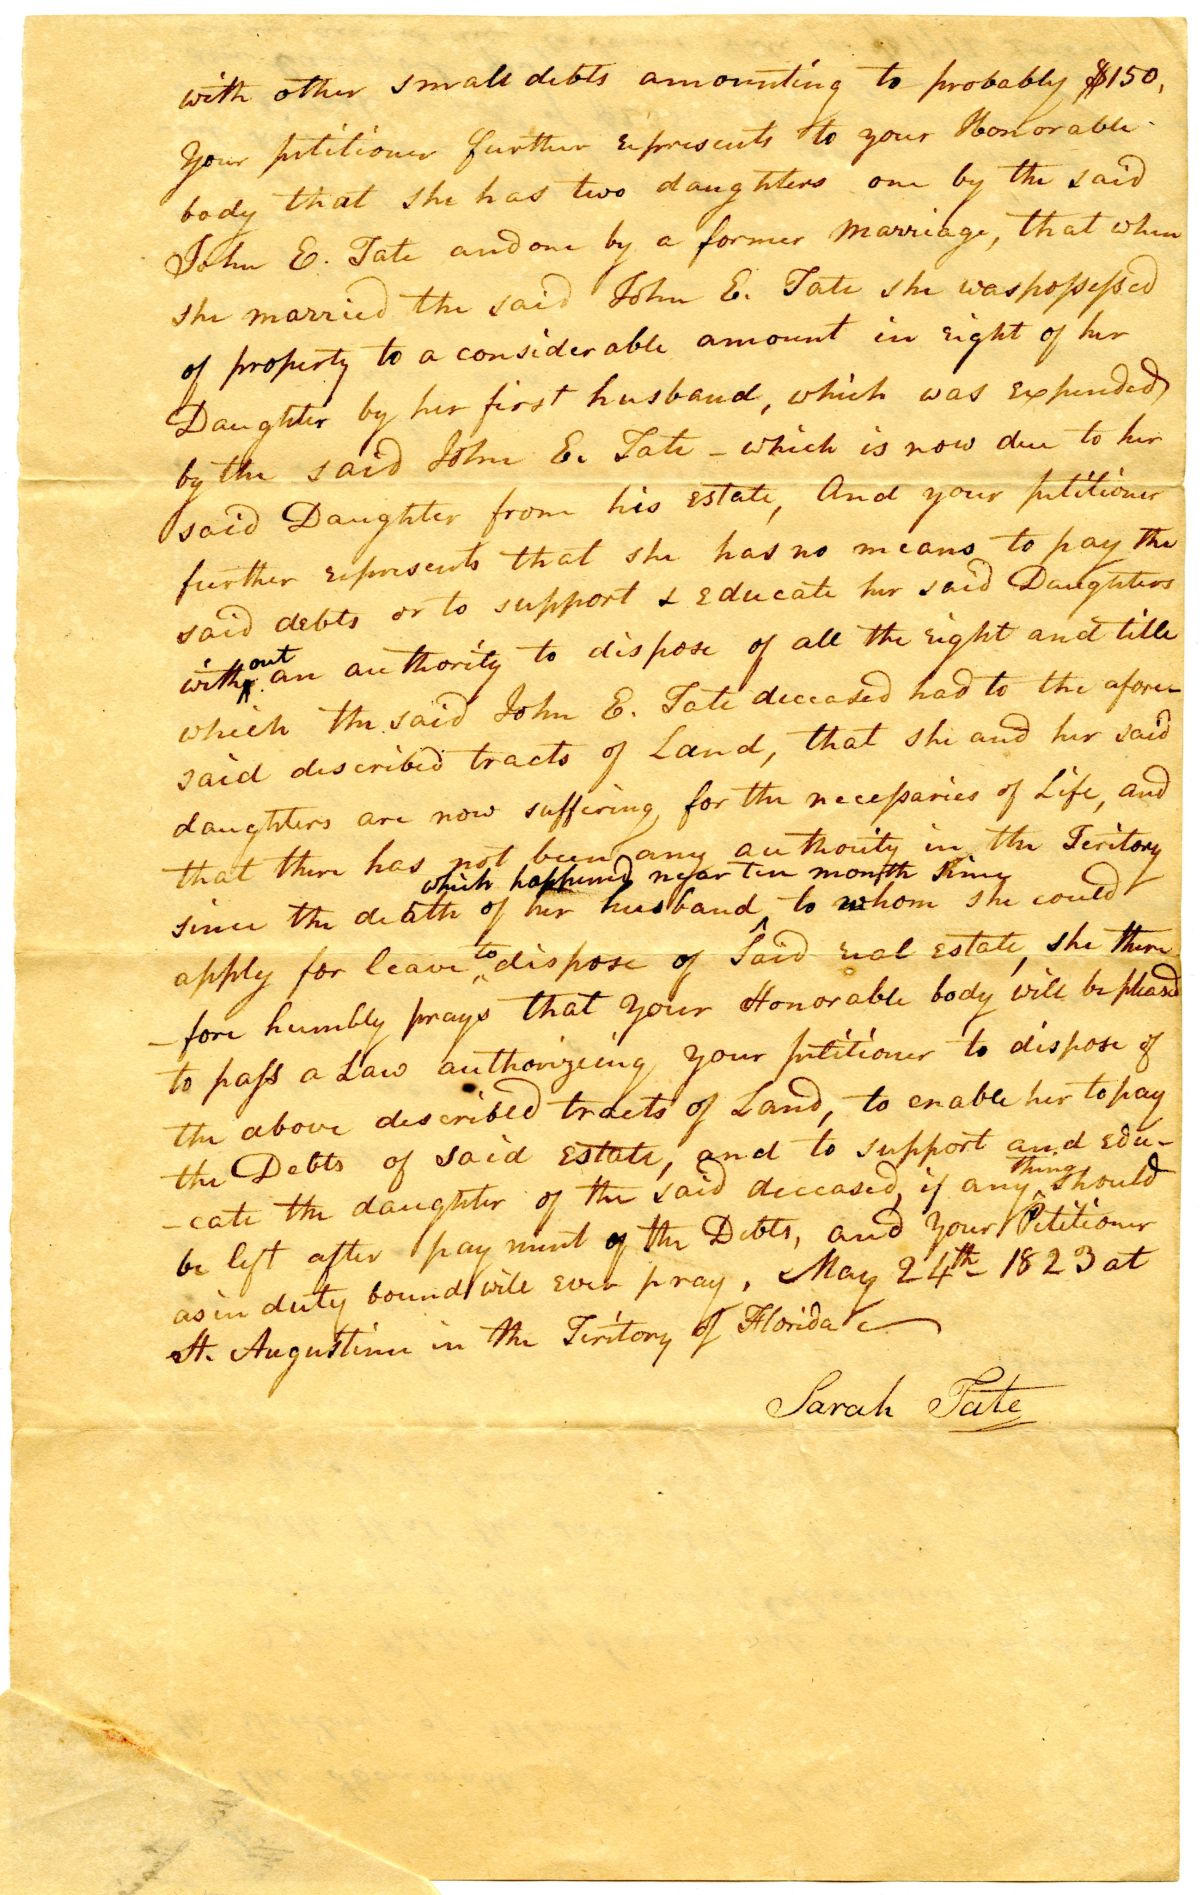 with other small debts amounting to probably $150,
Your petitioner further represents to your Honorable
body that she has two daughters one by the said
John E. Tate and one by a former marriage, that when
she married the said John E. Tate she was possessed
of property to a considerable amount in right of her
Daughter by her first husband, which was expended
by the said John E. Tate - which is now due to her
said Daughter from his estate, And your petitioner
further represents that she has no means to pay the
said debts or to support & educate her said Daughters
without an authority to dispose of all the right and title
which the said John E. Tate deceased had to the afore-
said described tracts of Land, that she and her said
daughters are now suffering for the necessaries of Life, and
that there has not been any authority in the Teritory
which happened near ten month sinc
since the death of her husband, to whom she could
apply for leave to dispose of said real estate, she there
-fore humbly prays that your Honorable body will be pleased
to pass a Law authorizeing your petitioner to dispose of
the above described tracts of Land, to enable her to pay
the Debts of said estate, and to support and edu-
-cate the daughter of the said deceased, if any thing should
be left after payment of the Debts, and your Petitioner
as in duty bound will ever pray, May 24th 1823 at
St. Augustine in the Teritory of Florida
Sarah Tate